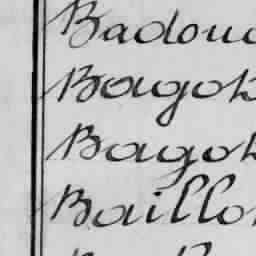 Badou
Bagot
Bagot
Baillo